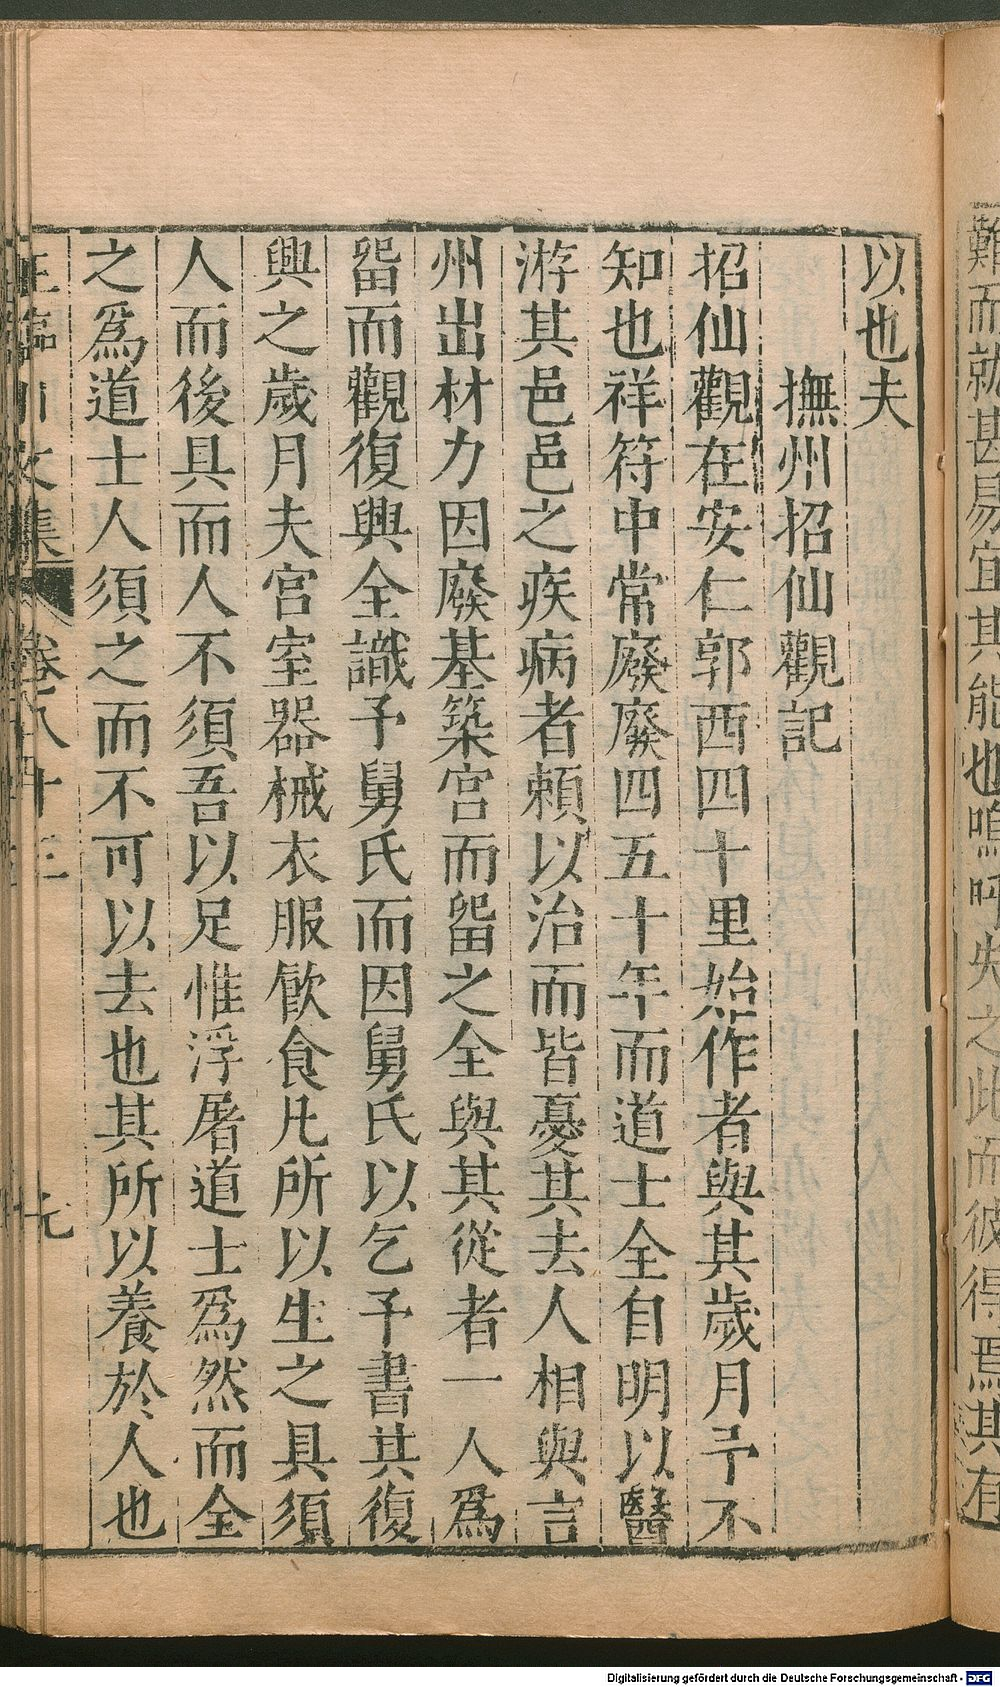 難而就甚易宜其能也嗚呼失之此而彼得焉其有
以也夫
撫州招仙觀記
招仙觀在安仁郭西四十里始作者與其歲月予不
知也祥符中常廢廢四五十年而道士全自明以醫
游其邑邑之疾病者賴以治而皆憂其去人相與言
州出材力因廢基築宮而畱之全與其從者一人為
畱而觀復興全識予舅氏而因舅氏以乞予書其復
興之歲月夫宮室器械衣服飲食凡所以生之具須
人而後具而人不須吾以足惟浮屠道士爲然而全
之爲道士人須之而不可以去也其所以養於人也
王臨川文集 卷八十三 九
Digitalisierung gefördert durch die Deutsche Forschungsgemeinschaft - DFG